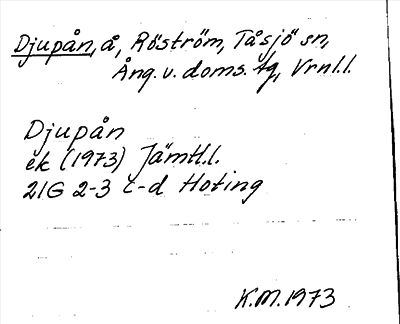 Djupån, å, Röström, Tåsjö sn,
Ång. v. doms. tg, Vrnl.l.
Djupån
ek (1973) Jämtl.l.
21G 2-3 c-d Hoting
K.M. 1973